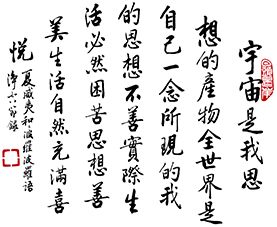 宇宙是我思
想的產物全世界是
自己一念所現的我
的思想不善實際生
活必然困苦思想善
美生活自然充滿喜
悅
夏威夷和波羅波羅語